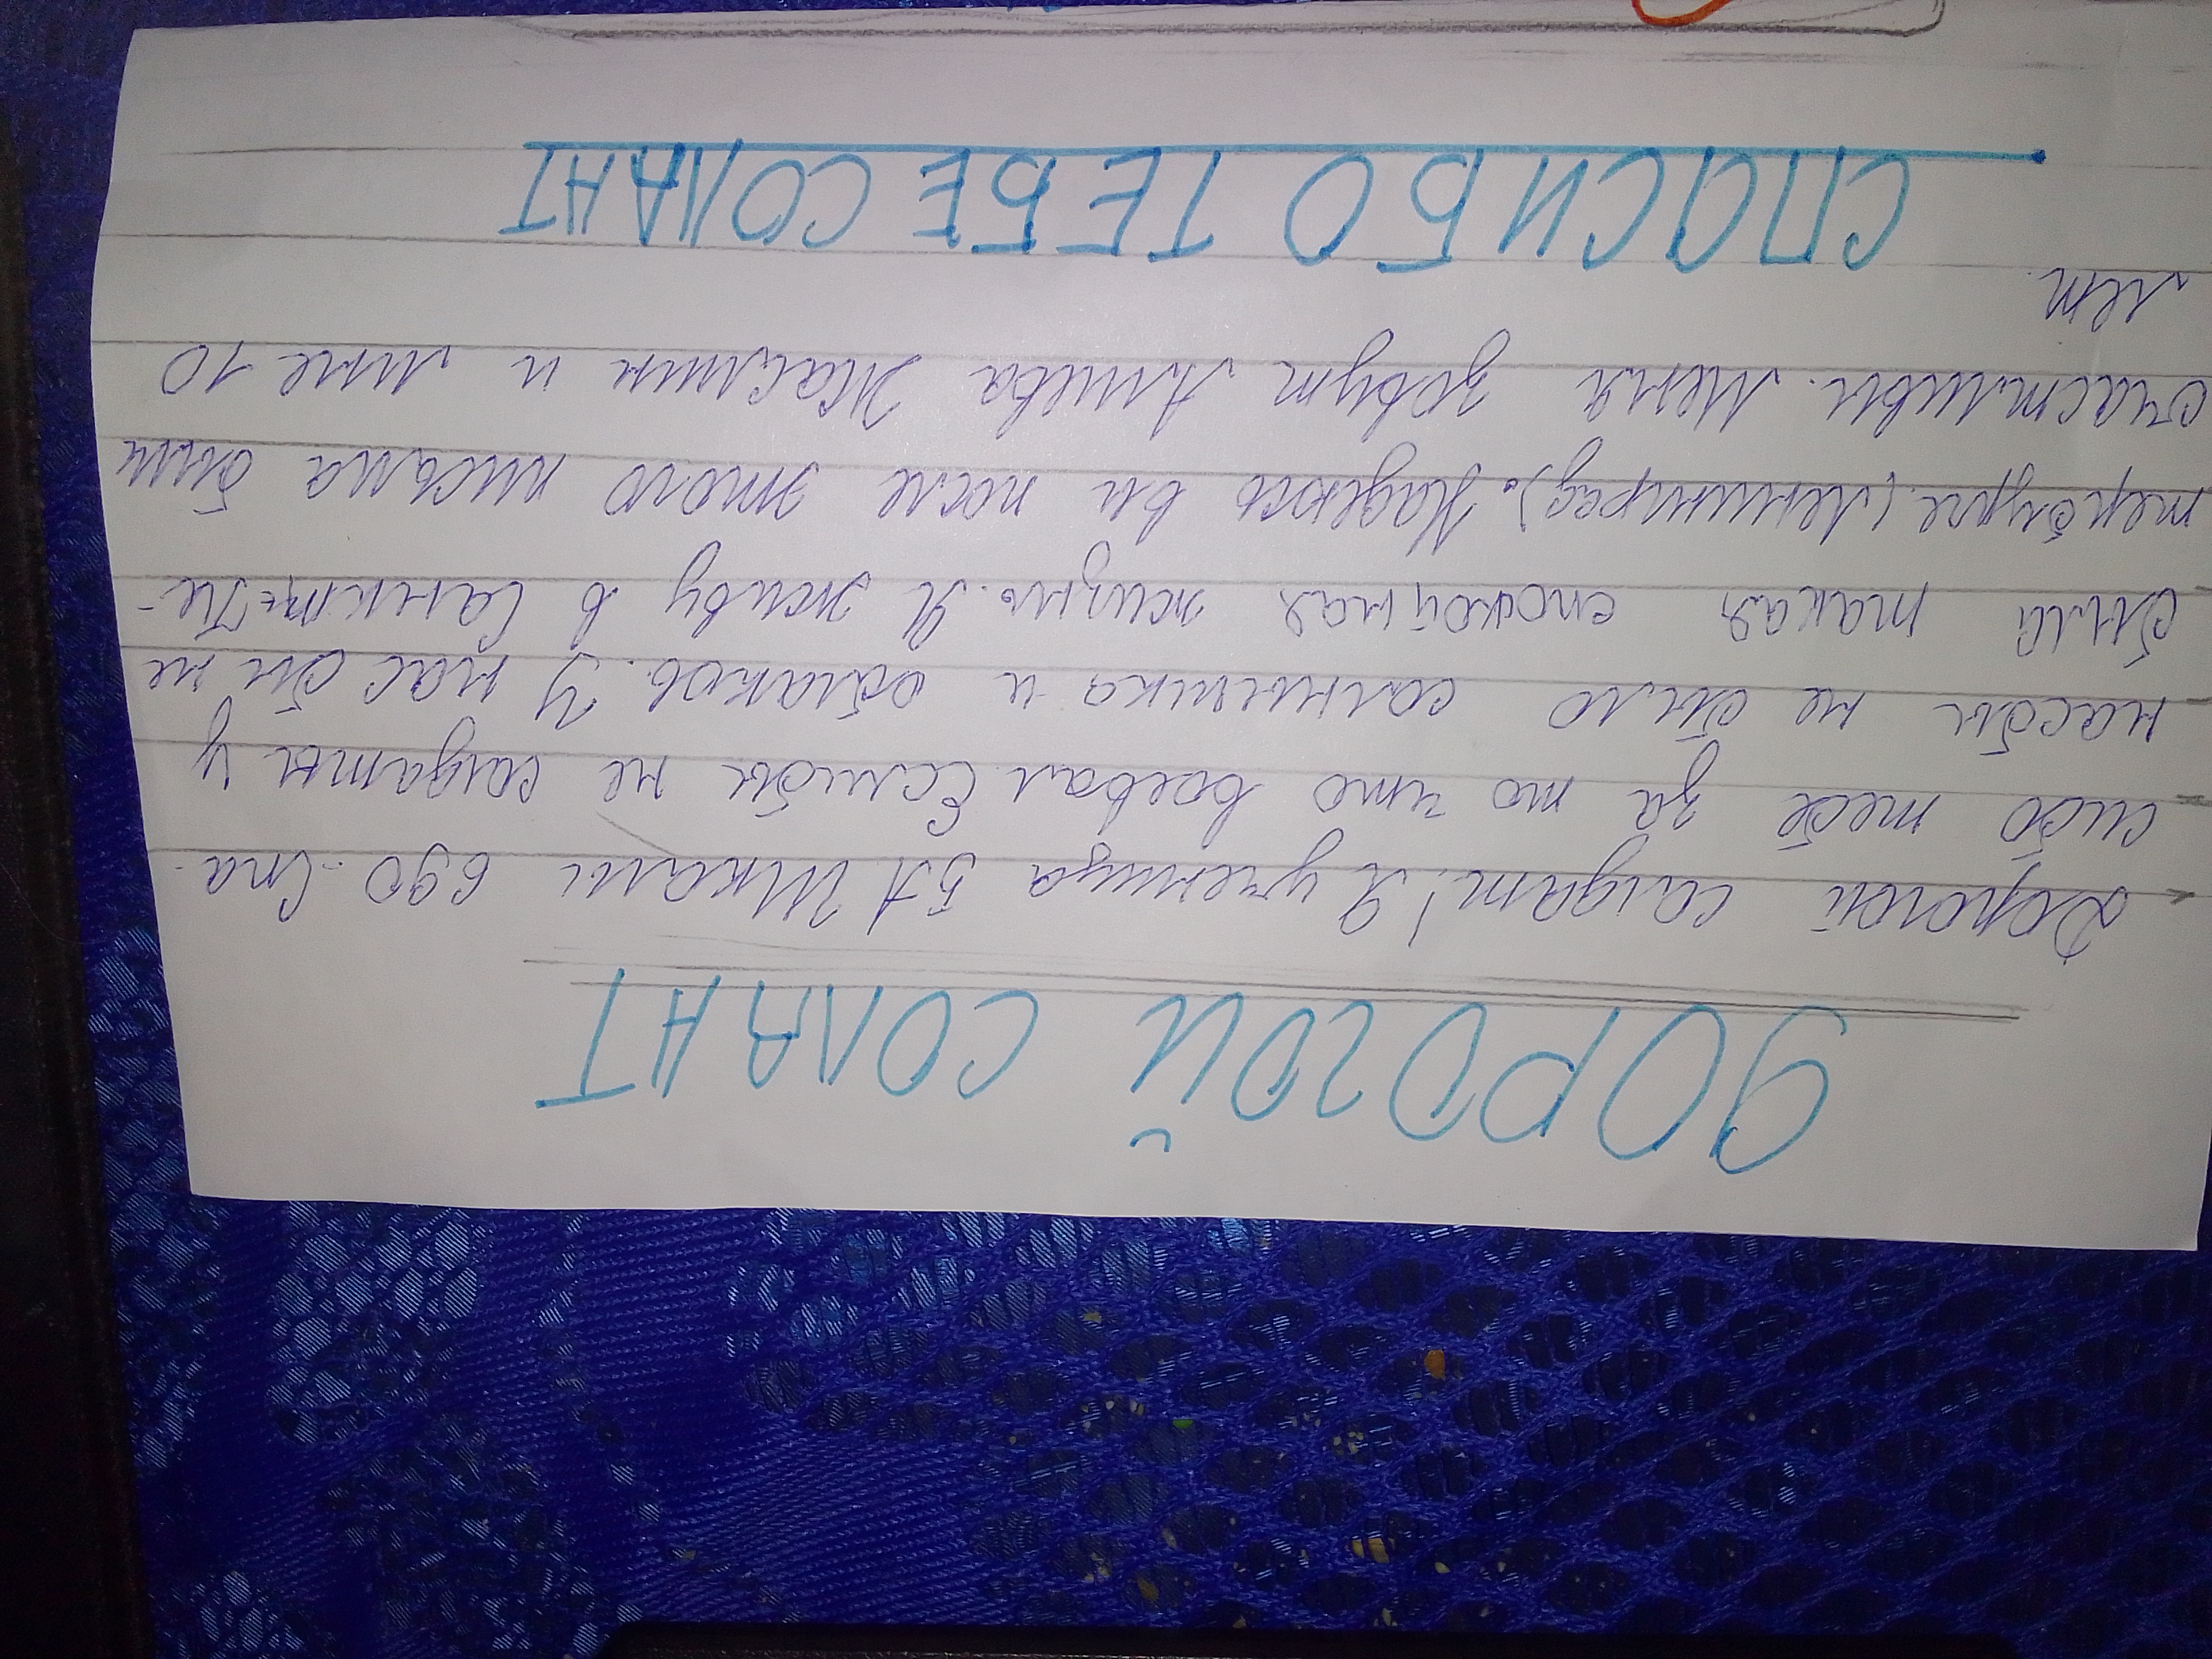 ДОРОГОЙ СОЛДАТ
Дорогой салдат! Я ученица 5А Шкалы 690. Спа-
сибо тебе за то что воевал. Еслибы не салдаты у
насбы не было солнышка и облаков. У нас бы не
была такая спокойная жизнь. Я живу в Санкт-Пе-
тербурге (Ленинград). Надеюсь вы после этого письма были
счастливы. Меня зовут Алиева Жасмин и мне 10
лет.
СПАСИБО ТЕБЕ СОЛДАТ